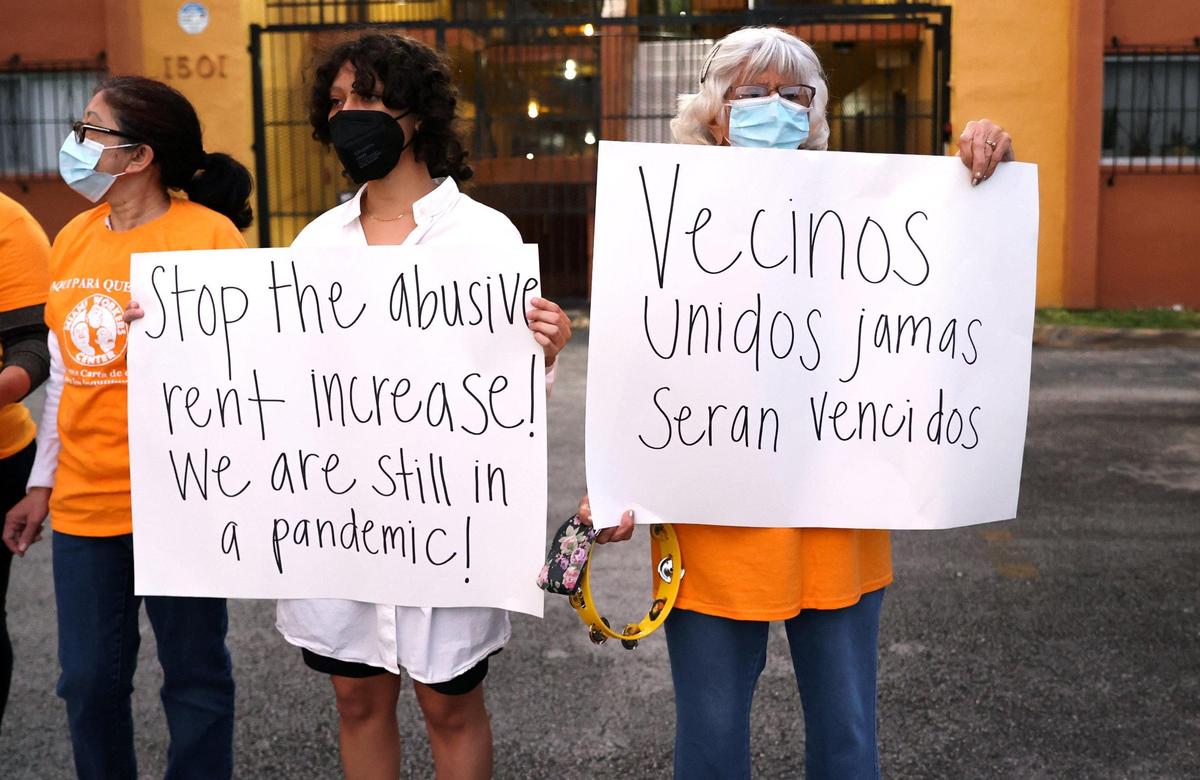 1501
AQUI PARA QUE
MIAMI WORKERS
CENTER
Carta de
Stop the abusive
rent increase!
We are still in
a pandemic!
Vecinos
Unidos jamas
Seran vencidos